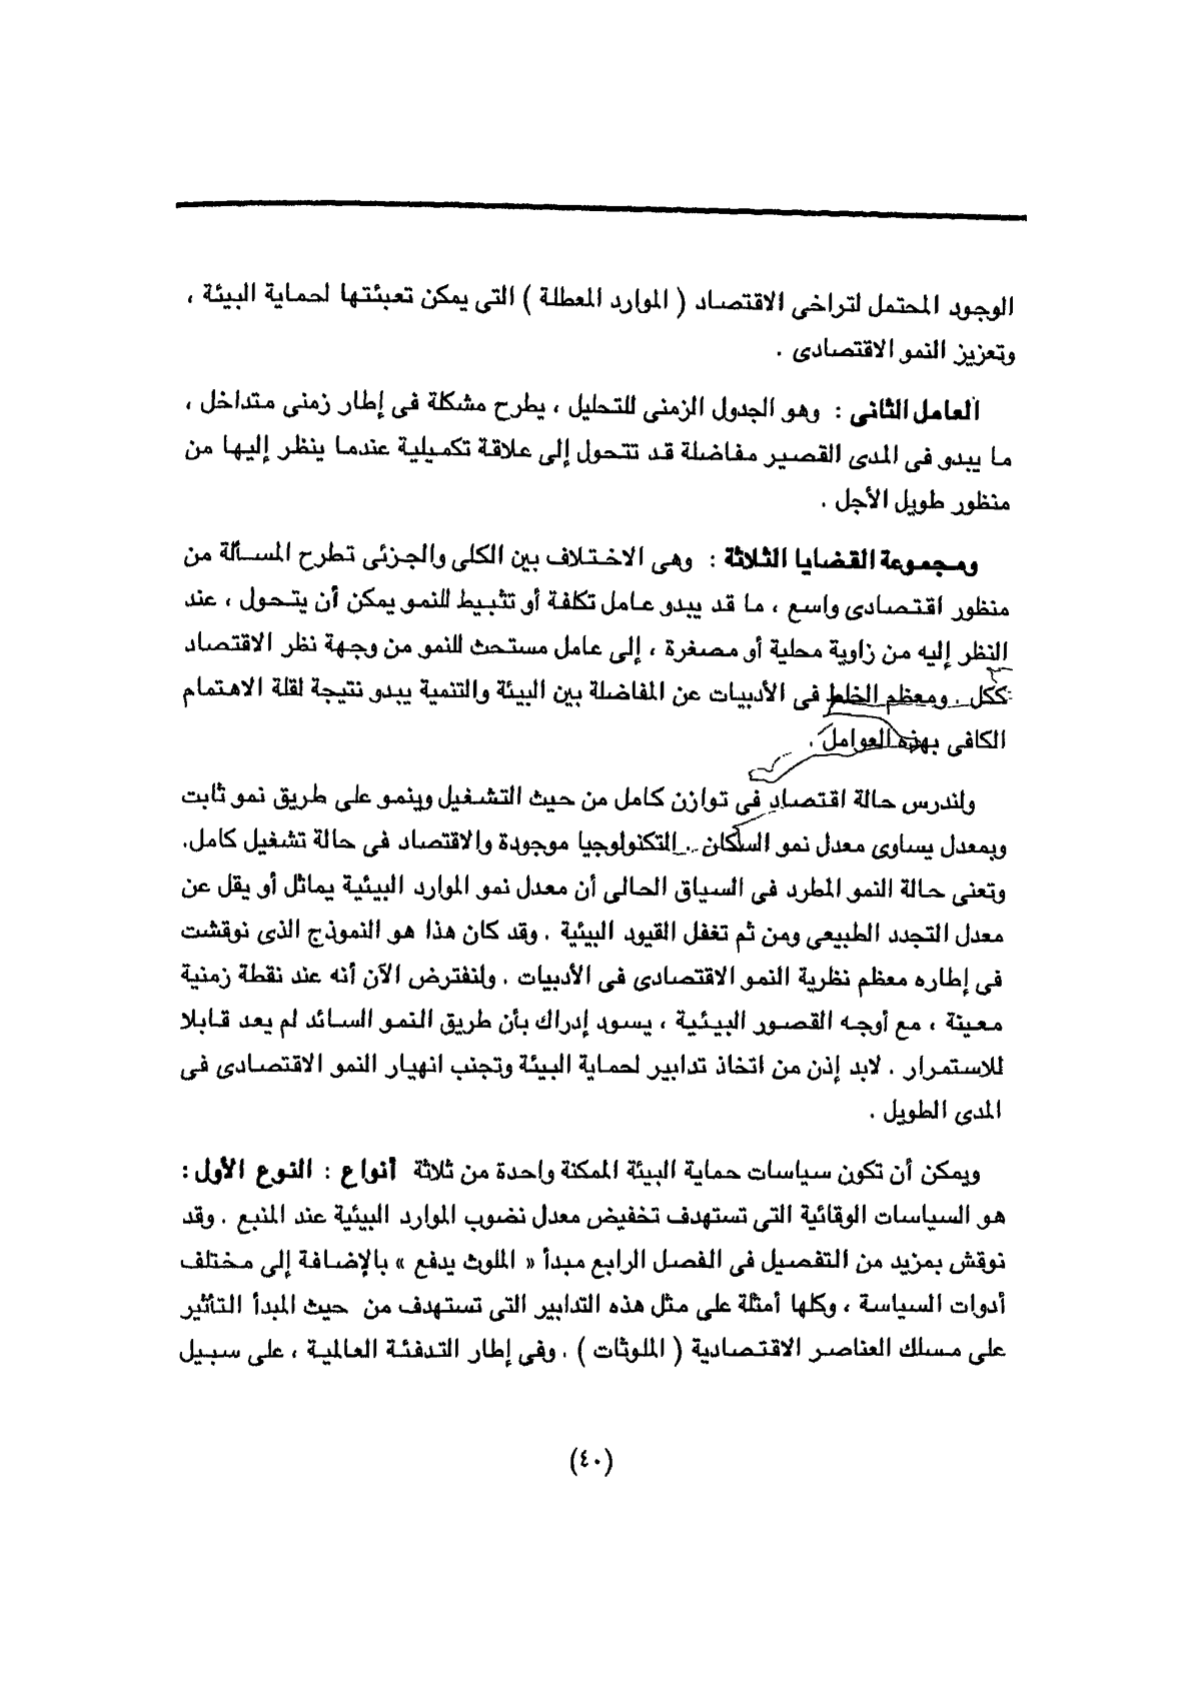 الوجود المحتمل لتراخى الاقتصاد ( الموارد المعطلة ) التى يمكن تعبئتها لحماية البيئة ،
وتعزيز النمو الاقتصادى .
العامل الثانى : وهو الجدول الزمنى للتحليل ، يطرح مشكلة فى إطار زمنى متداخل ،
ما يبدو فى المدى القصير مفاضلة قد تتحول إلى علاقة تكميلية عندما ينظر إليها من
منظور طويل الأجل .
ومجموعة القضايا الثلاثة : وهى الاختلاف بين الكلى والجزئى تطرح المسألة من
منظور اقتصادى واسع ، ما قد يبدو عامل تكلفة أو تثبيط للنمو يمكن أن يتحول ، عند
النظر إليه من زاوية محلية أو مصغرة ، إلى عامل مستحث للنمو من وجهة نظر الاقتصاد
ككل . ومعظم الخلط فى الأدبيات عن المفاضلة بين البيئة والتنمية يبدو نتيجة لقلة الاهتمام
الكافى بهذه العوامل .
ولندرس حالة اقتصاد فى توازن كامل من حيث التشغيل وينمو على طريق نمو ثابت
وبمعدل يساوى معدل نمو السكان . التكنولوجيا موجودة والاقتصاد فى حالة تشغيل كامل.
وتعنى حالة النمو المطرد فى السياق الحالى أن معدل نمو الموارد البيئية يماثل أو يقل عن
معدل التجدد الطبيعى ومن ثم تغفل القيود البيئية . وقد كان هذا هو النموذج الذى نوقشت
فى إطاره معظم نظرية النمو الاقتصادى فى الأدبيات . ولنفترض الآن أنه عند نقطة زمنية
معينة ، مع أوجه القصور البيئية ، يسود إدراك بأن طريق النمو السائد لم يعد قابلا
للاستمرار . لابد إذن من اتخاذ تدابير لحماية البيئة وتجنب انهيار النمو الاقتصادى فى
المدى الطويل .
ويمكن أن تكون سياسات حماية البيئة الممكنة واحدة من ثلاثة أنواع : النوع الأول :
هو السياسات الوقائية التى تستهدف تخفيض معدل نضوب الموارد البيئية عند المنبع . وقد
نوقش بمزيد من التفصيل فى الفصل الرابع مبدأ « الملوث يدفع » بالإضافة إلى مختلف
أدوات السياسة ، وكلها أمثلة على مثل هذه التدابير التى تستهدف من حيث المبدأ التأثير
على مسلك العناصر الاقتصادية ( الملوثات ) . وفى إطار التدفئة العالمية ، على سبيل
(٤٠)